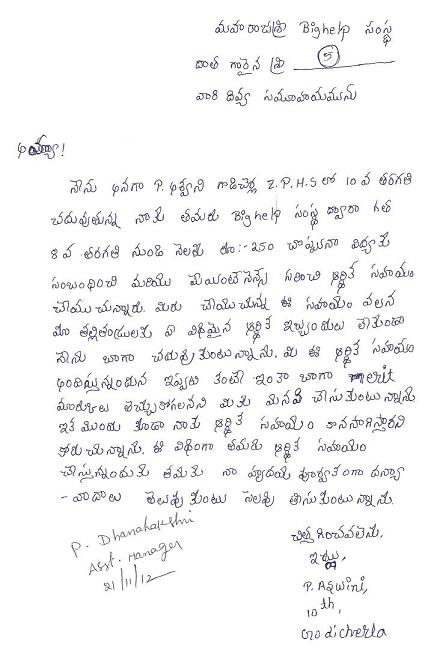 మహారాజశ్రీ Bighelp సంస్థ
దాత గారైన శ్రీ 5
వారి దివ్య సమూహయమునకు
అయ్యా!
నేను అనగా P. అశ్విని గాడిచెర్ల Z.P.H.S లో 10 వ తరగతి
చదువుతున్న నాకు తమరు Bighelp సంస్థ ద్వారా గత
8 వ తరగతి నుండి నెలకు రూ:- 250 చొప్పున నా విద్యకు
సంబంధించి మరియు మెయింటెనెన్స్ ఆర్థిక సహాయం
చేయు చున్నారు. మీరు చేయుచున్న ఈ సహాయం వలన
మా తల్లితండ్రులకు ఏ విధమైన ఆర్థిక ఇబ్బందులు లేకుండా
నేను బాగా చదువుకుంటున్నాను. మీ ఈ ఆర్థిక సహాయం
అందిస్తున్నందున ఇప్పటి కంటే ఇంకా బాగా merit
మార్కులు తెచ్చుకోగలనని మీకు మనవి చేసుకుంటున్నాను
ఇక ముందు కూడా నాకు ఆర్థిక సహాయం కొనసాగిస్తారని
కోరుచున్నాను. ఈ విధంగా తమరు ఆర్థిక సహాయం
చేస్తున్నందుకు తమకు నా హృదయ పూర్వకంగా ధన్యా
- వాదాలు తెలుపుకుంటు సెలవు తీసుకుంటున్నాను.
P. Dhanalakshmi
Asst. Manager
21/11/12
చిత్తగించవలెను,
ఇట్లు,
P. Aswini,
10th,
Gadicherla